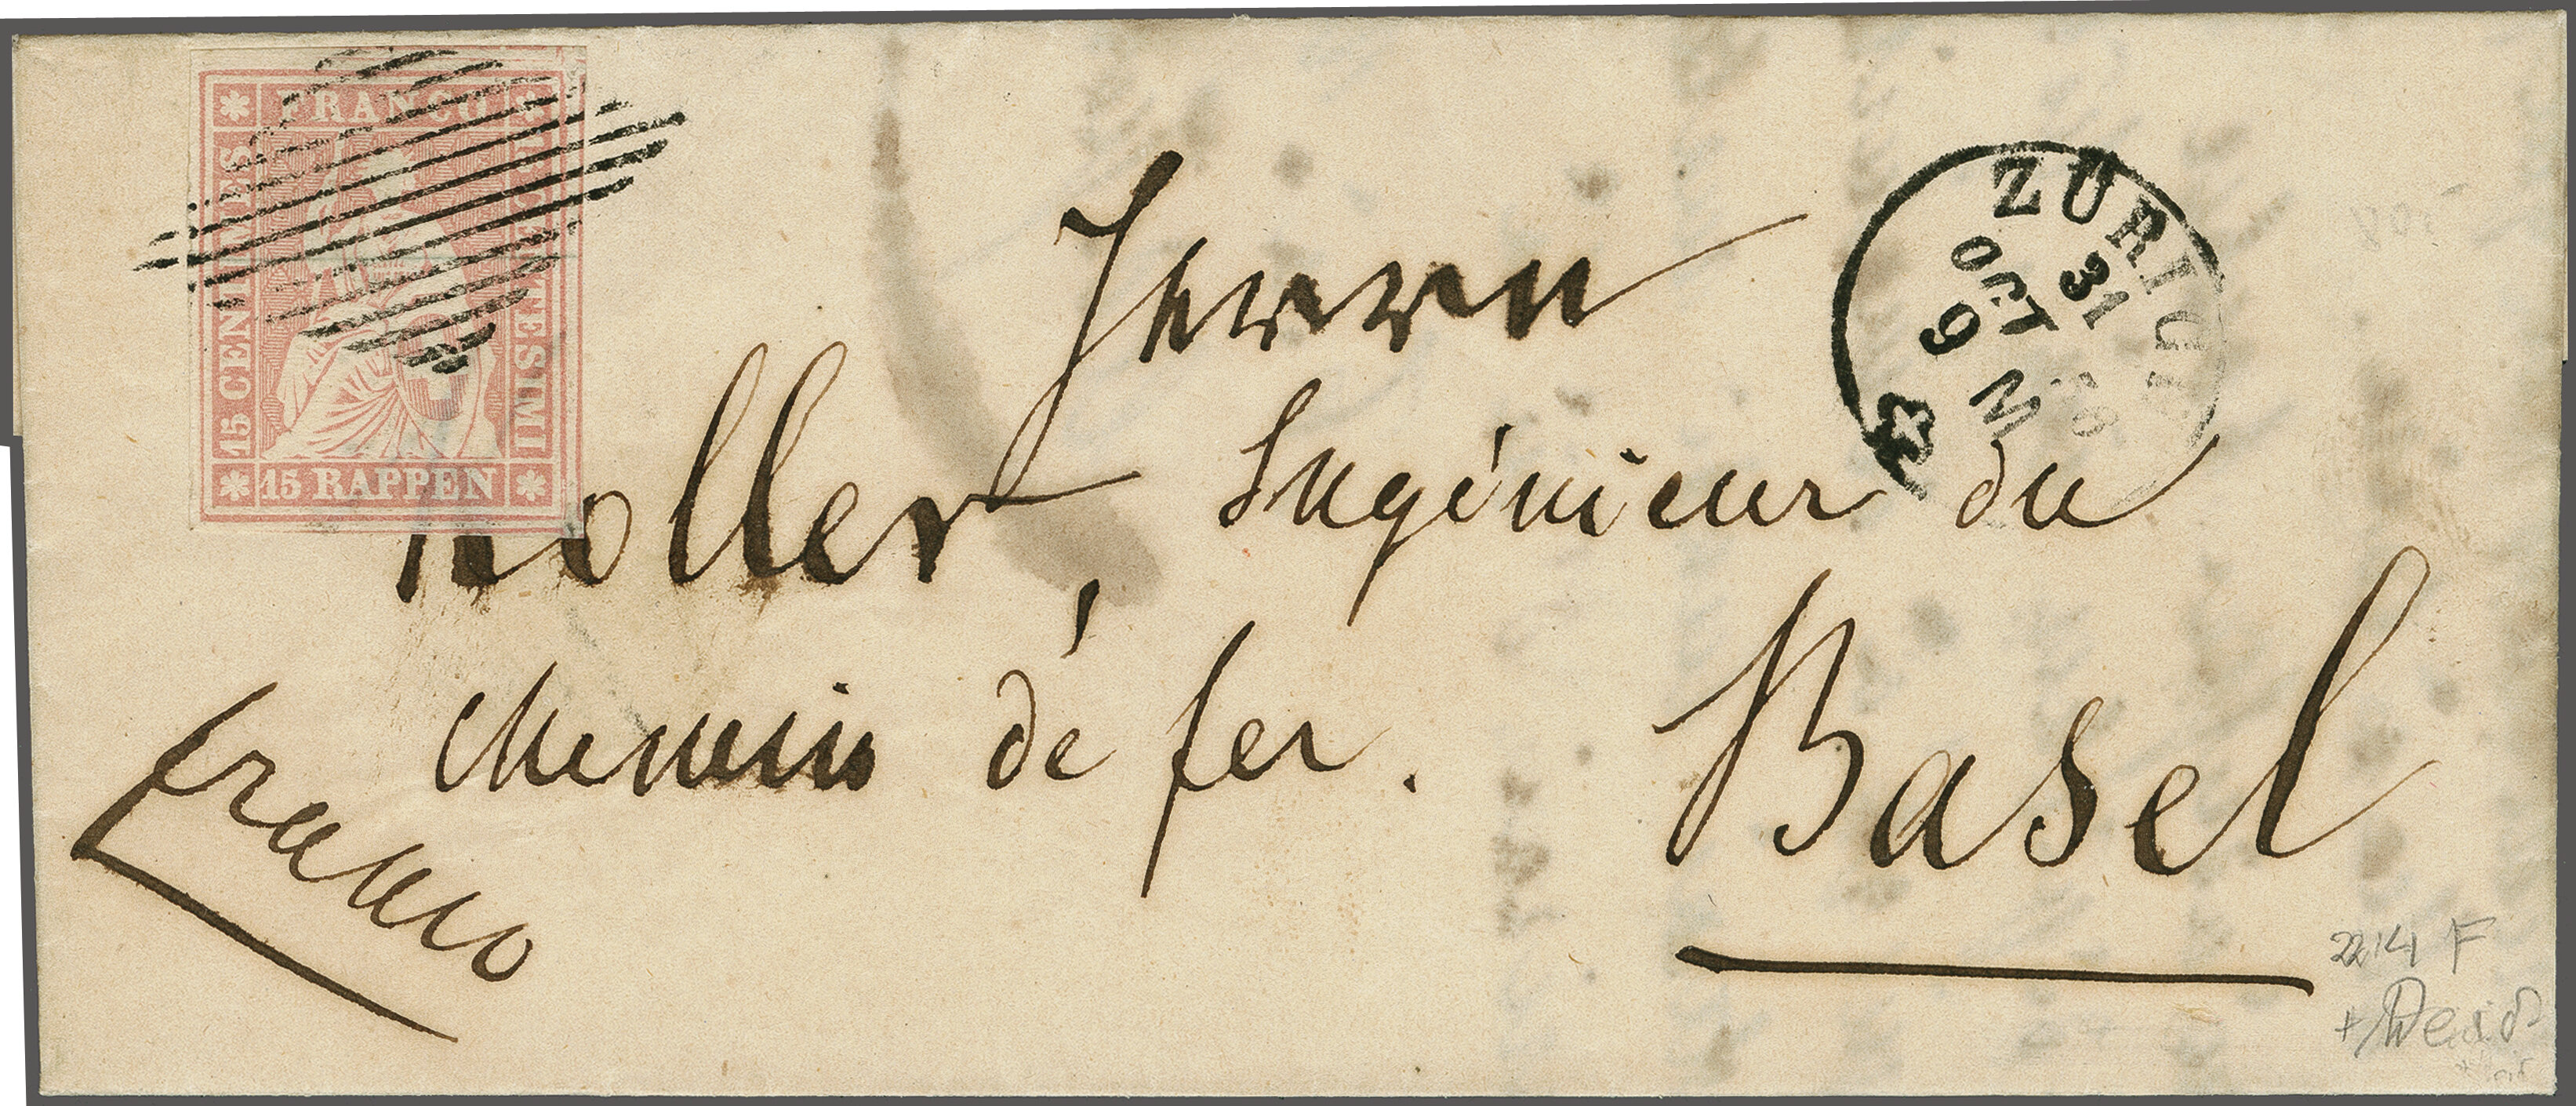 FRANCO
15 CENTIMES
15 CENTESIMI
15 RAPPEN
ZÜRICH
31
OCT
9 M
Herrn
Koller, Ingénieur du
chemin de fer. Basel
franco
2214 F